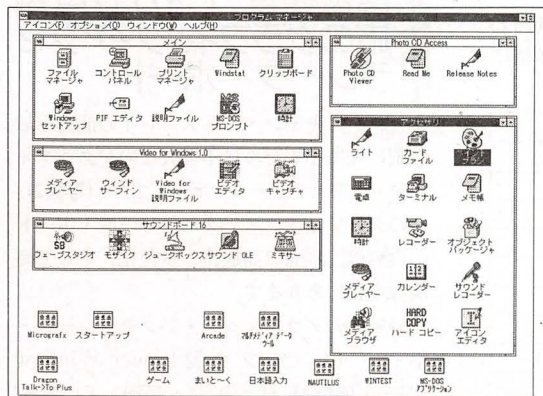 プログラム マネージャ
アイコン(F) オプション(O) ウィンドウ(W) ヘルプ(H)
メイン
ファイル
マネージャ
コントロール
パネル
プリント
マネージャ
Windstat
クリップボード
Windows
セットアップ
PIF エディタ
説明ファイル
MS-DOS
プロンプト
時計
Video for Windows 1.0
メディア
プレーヤー
ウィンド
サーフィン
Video for
Windows
説明ファイル
ビデオ
エディタ
ビデオ
キャプチャ
サウンドボード 16
SB
ウェーブスタジオ
モザイク
ジュークボックス
サウンド OLE
ミキサー
Photo CD Access
Photo CD
Viewer
Read Me
Release Notes
アクセサリ
ライト
カード
ファイル
電卓
ターミナル
メモ帳
時計
レコーダー
オブジェクト
パッケージャ
メディア
プレーヤー
12
カレンダー
サウンド
レコーダー
メディア
ブラウザ
HARD
COPY
ハード コピー
アイコン
エディタ
Micrografx
スタートアップ
Arcade
マルチメディア データ
ツール
Dragon
Talk->To Plus
ゲーム
まいと～く
日本語入力
NAUTILUS
WINTEST
MS-DOS
アプリケーション